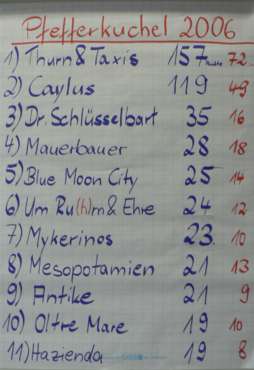 Pfefferkuchel 2006
1) Thurn & Taxis 157 72
2) Caylus 119 49
3) Dr. Schlüsselbart 35 16
4) Mauerbauer 28 18
5) Blue Moon City 25 14
6) Um Ru(h)m & Ehre 24 12
7) Mykerinos 23 10
8) Mesopotamien 21 13
9) Antike 21 9
10) Oltre Mare 19 10
11) Hazienda 19 8